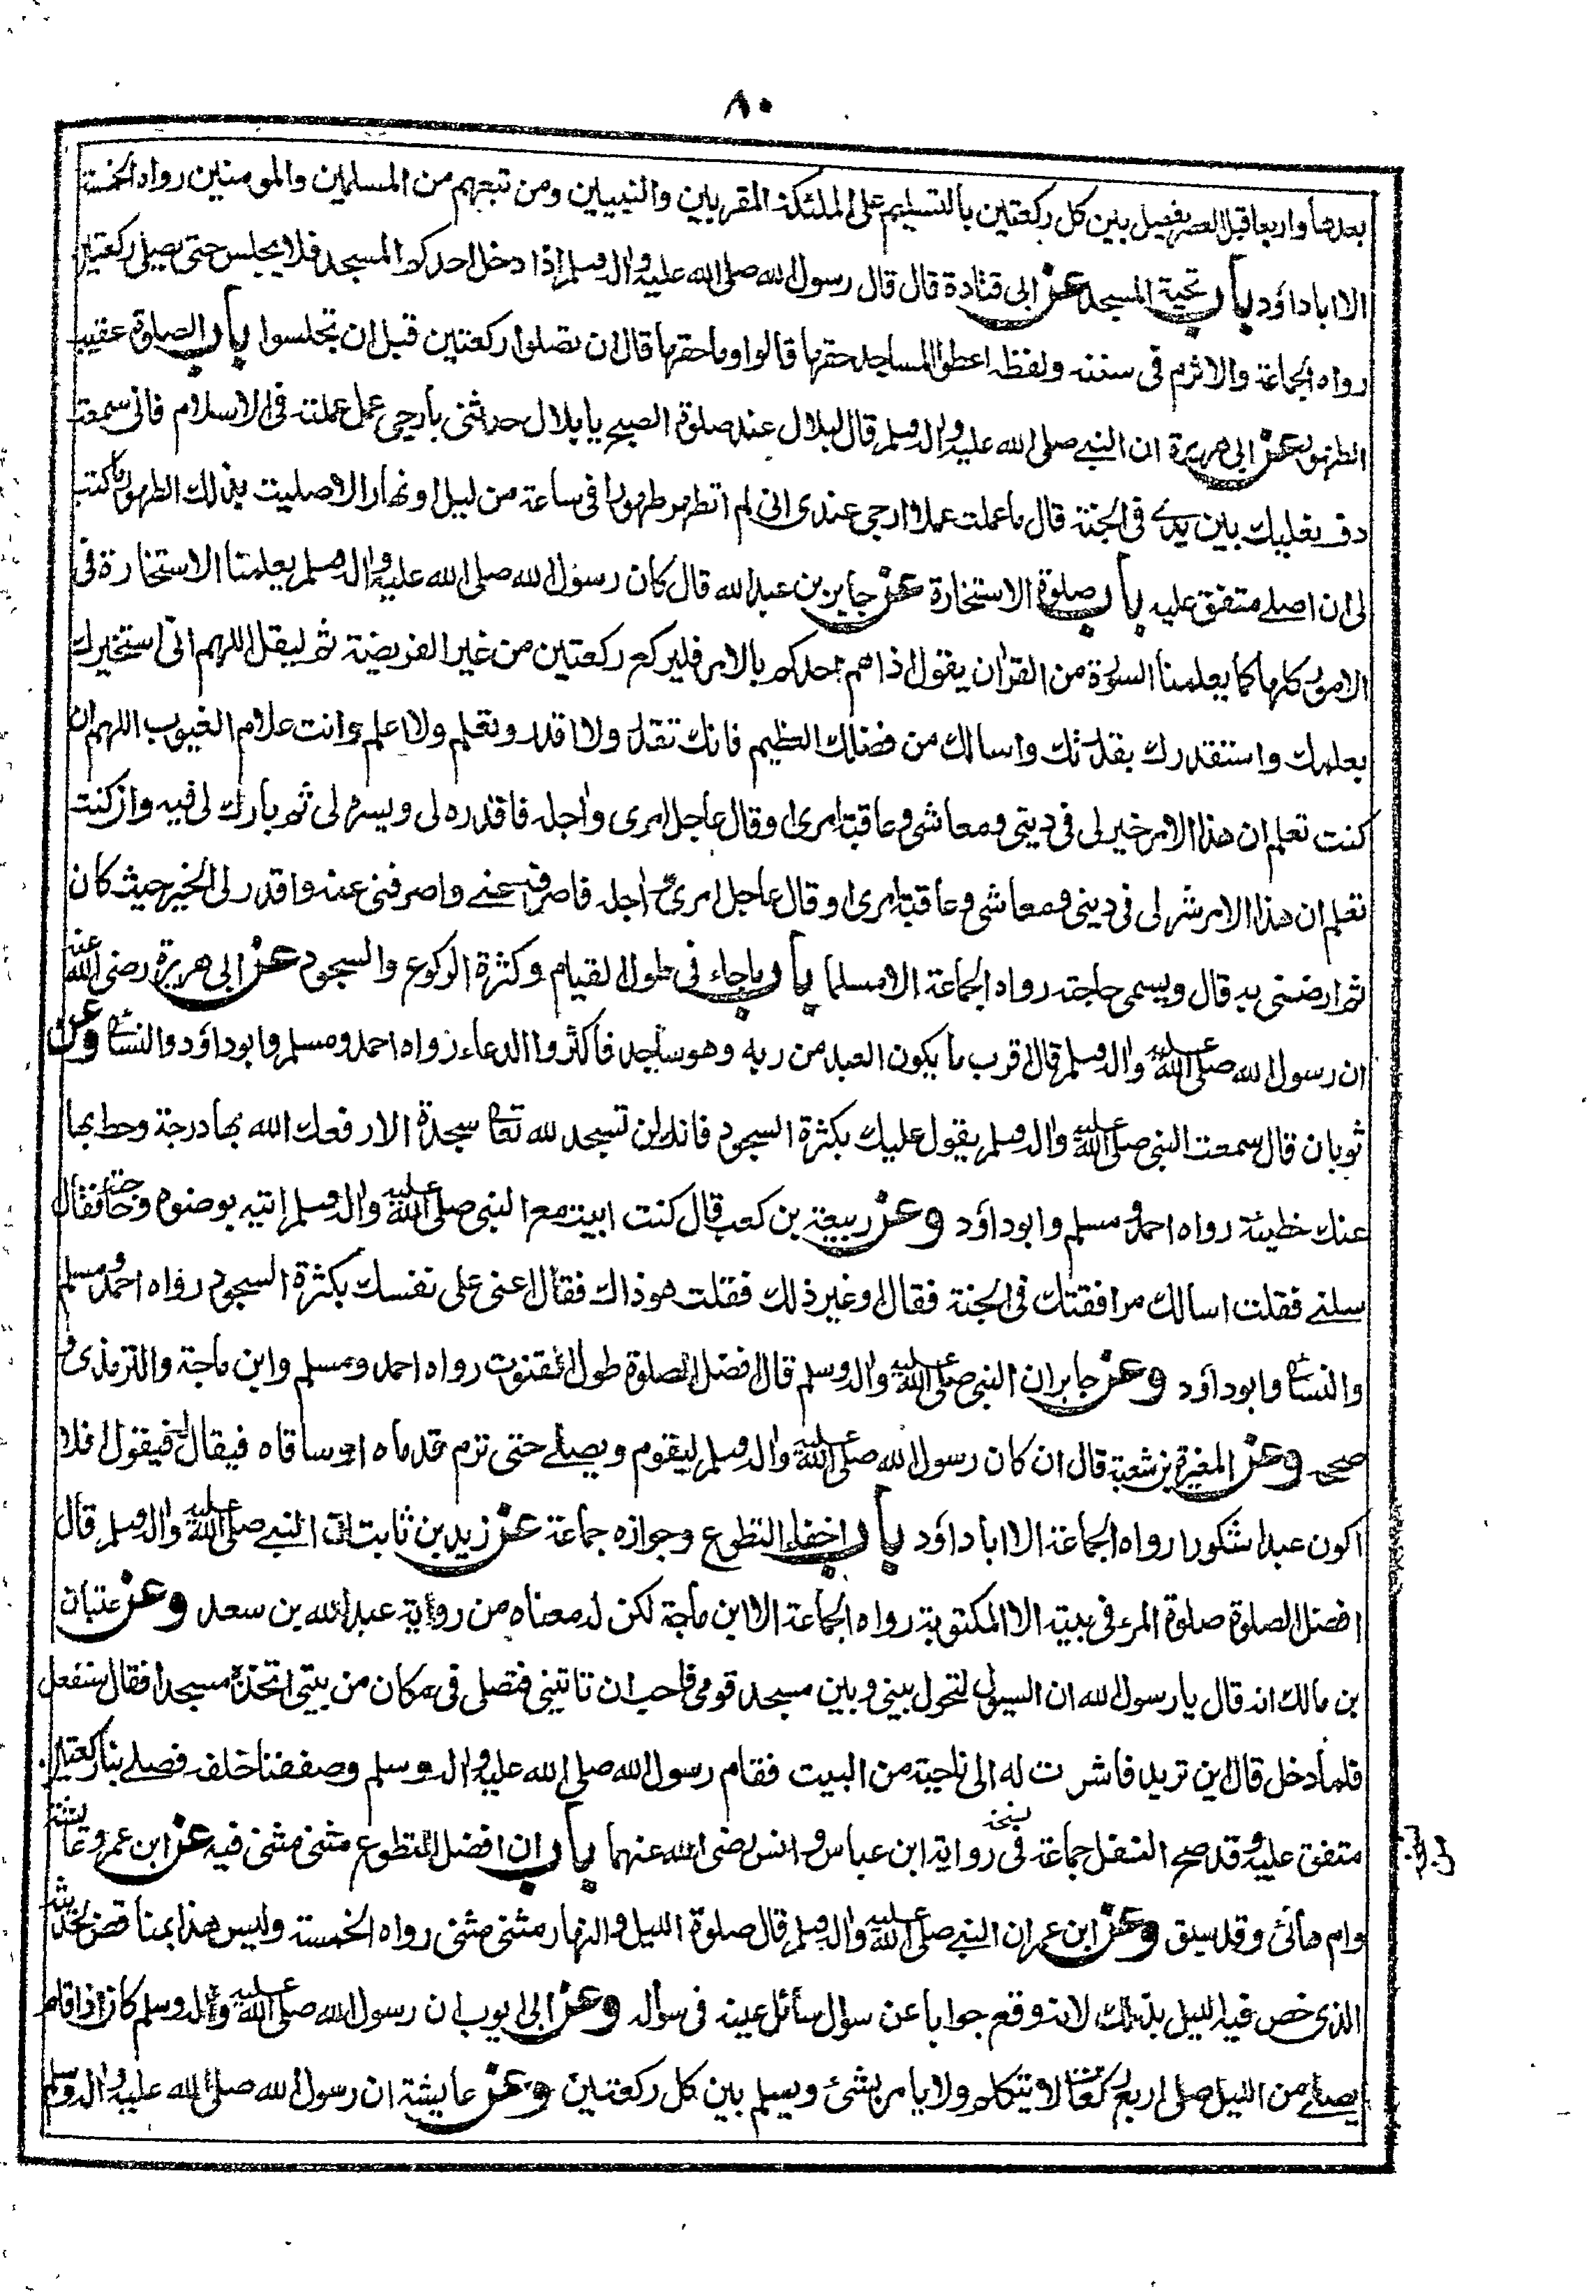 ٨٠
بعدها واربعا قبل العصر يفصل بين كل ركعتين بالتسليم على الملئكة المقربين والنبيين ومن تبعهم من المسلمين والمومنين رواه الخمسة
الا ابا داؤد باب تحية المسجد عن ابى قتادة قال قال رسول الله صلى الله عليه واله وسلم اذا دخل احدكم المسجد فلا يجلس حتى يصلى ركعتين
رواه الجماعة والاثرم فى سننه ولفظه اعطوا المساجد حقها قالوا وما حقها قال ان تصلوا ركعتين قبل ان تجلسوا باب الصلوة عقيب
الطهور عن ابى هريرة ان النبى صلى الله عليه واله وسلم قال لبلال عند صلوة الصبح يا بلال حدثنى بارجى عمل عملته فى الاسلام فانى سمعت
دف نعليك بين يدى فى الجنة قال ما عملت عملا ارجى عندى انى لم اتطهر طهورا فى ساعة من ليل او نهار الا صليت بذلك الطهور ما كتب
لى ان اصلى متفق عليه باب صلوة الاستخارة عن جابر بن عبد الله قال كان رسول الله صلى الله عليه واله وسلم يعلمنا الاستخارة فى
الامور كلها كما يعلمنا السورة من القران يقول اذا هم احدكم بالامر فليركع ركعتين من غير الفريضة ثم ليقل اللهم انى استخيرك
بعلمك واستقدرك بقدرتك واسالك من فضلك العظيم فانك تقدر ولا اقدر وتعلم ولا اعلم وانت علام الغيوب اللهم ان
كنت تعلم ان هذا الامر خير لى فى دينى ومعاشى وعاقبة امرى او قال عاجل امرى واجله فاقدره لى ويسره لى ثم بارك لى فيه وان كنت
تعلم ان هذا الامر شر لى فى دينى ومعاشى وعاقبة امرى او قال عاجل امرى و اجله فاصرفه عنى واصرفنى عنه واقدر لى الخير حيث كان
ثم ارضنى به قال ويسمى حاجته رواه الجماعة الا مسلما باب ما جاء فى طول القيام وكثرة الركوع والسجود عن ابى هريرة رضى الله عنه
ان رسول الله صلى الله عليه واله وسلم قال اقرب ما يكون العبد من ربه وهو ساجد فاكثروا الدعاء رواه احمد ومسلم وابوداؤد والنسائى وعن
ثوبان قال سمعت النبى صلى الله عليه واله وسلم يقول عليك بكثرة السجود فانك لن تسجد لله تعا سجدة الا رفعك الله بها درجة وحط بها
عنك خطيئة رواه احمد ومسلم وابوداؤد وعن ربيعة بن كعب قال كنت ابيت مع النبى صلى الله عليه واله وسلم اتيه بوضوه وحاجته فقال
سلنى فقلت اسالك مرافقتك فى الجنة فقال او غير ذلك فقلت هو ذاك فقال اعنى على نفسك بكثرة السجود رواه احمد ومسلم
والنسائى وابوداؤد وعن جابر ان النبى صلى الله عليه واله وسلم قال افضل الصلوة طول القنوت رواه احمد ومسلم وابن ماجة والترمذى و
صححه وعن المغيرة بن شعبة قال ان كان رسول الله صلى الله عليه واله وسلم ليقوم ويصلى حتى ترم قدماه او ساقاه فيقال له فيقول افلا
اكون عبدا شكورا رواه الجماعة الا ابا داؤد باب اخفاء التطوع وجوازه جماعة عن زيد بن ثابت ان النبى صلى الله عليه واله وسلم قال
افضل الصلوة صلوة المرء فى بيته الا المكتوبة رواه الجماعة الا ابن ماجة لكن له معناه من رواية عبد الله بن سعد وعن عتبان
بن مالك انه قال يا رسول الله ان السيول لتحول بينى وبين مسجد قومى فاحب ان تاتينى فتصلى فى مكان من بيتى اتخذه مسجدا فقال سنفعل
فلما دخل قال اين تريد فاشرت له الى ناحية من البيت فقام رسول الله صلى الله عليه واله وسلم وصففنا خلفه فصلى بنا ركعتين
متفق عليه وقد صح التنفل جماعة فى رواية ابن عباس وانس رضى الله عنهما باب ان افضل التطوع مثنى مثنى فيه عن ابن عمر وعائشة
وام هانئ وقد سبق وعن ابن عمر ان النبى صلى الله عليه واله وسلم قال صلوة الليل والنهار مثنى مثنى رواه الخمسة وليس هذا بمناقض لحديثه
الذى خص فيه الليل بذلك لانه وقع جوابا عن سؤال سائل عينه فى سؤاله وعن ابى ايوب ان رسول الله صلى الله عليه واله وسلم كان اذا قام
يصلى من الليل صلى اربع ركعات لا يتكلم ولا يامر بشئ ويسلم بين كل ركعتين وعن عايشة ان رسول الله صلى الله عليه واله وسلم